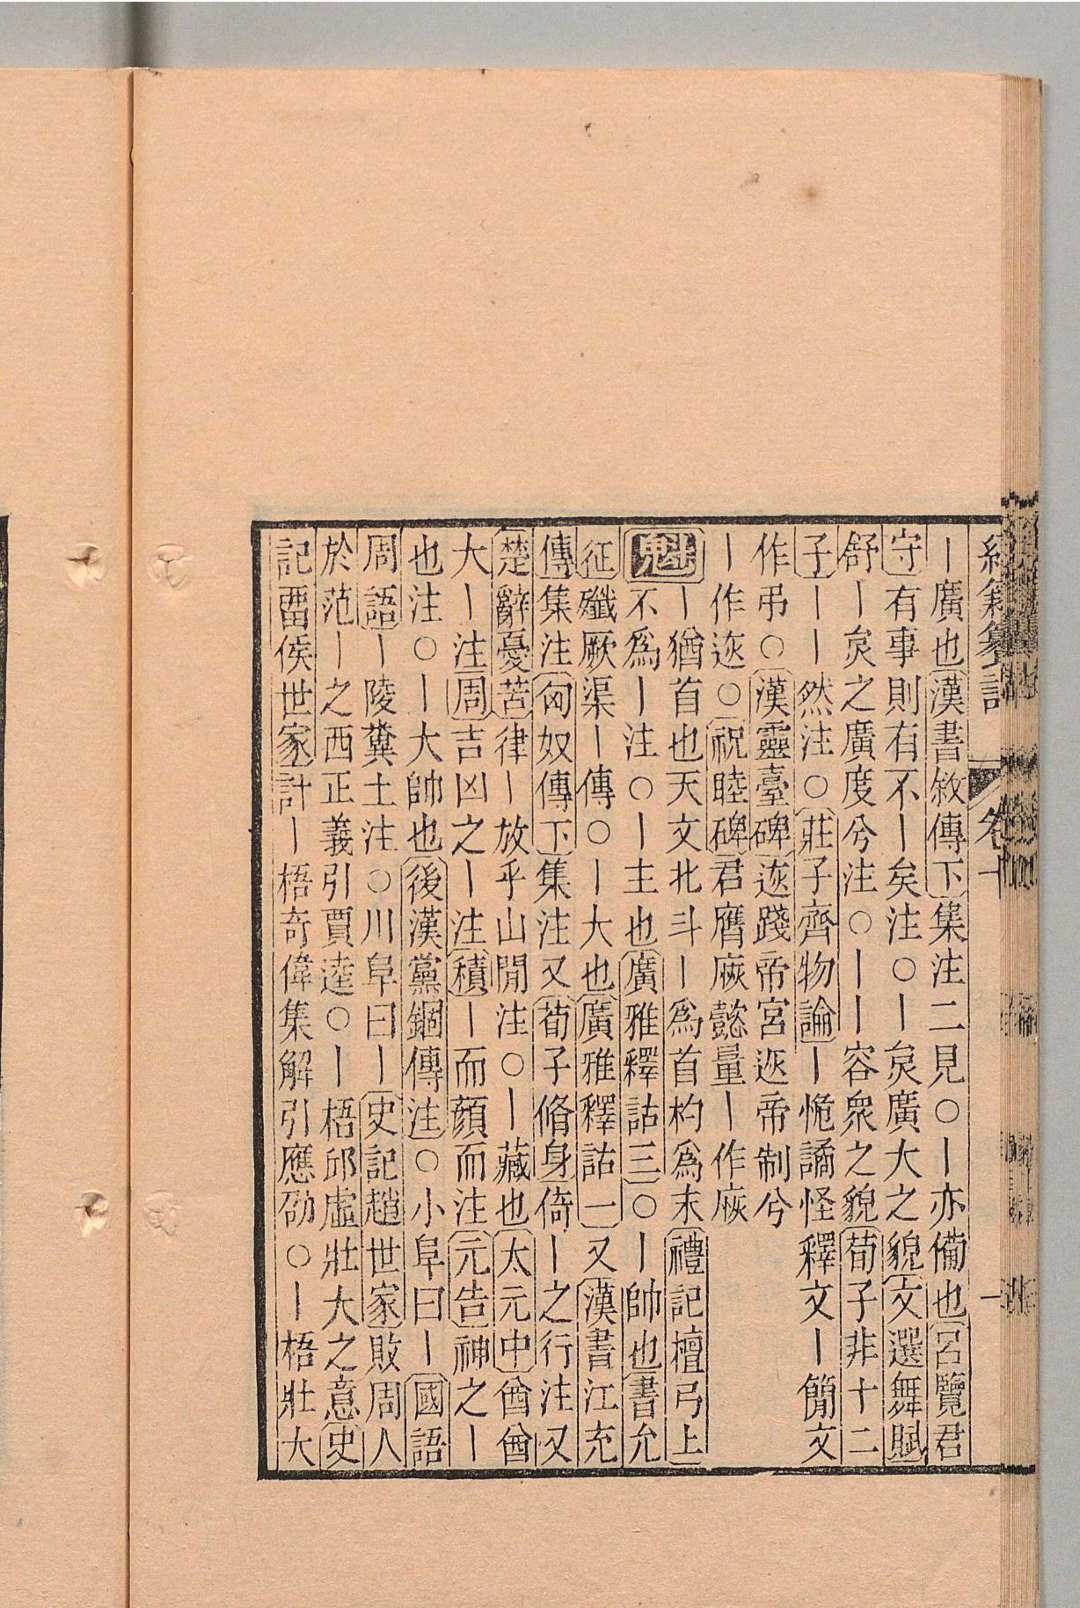 經籍籑詁 卷一
丨廣也漢書敘傳下集注二見○丨亦備也呂覽君
守有事則有不丨矣注○丨㡿廣大之貌文選舞賦
舒丨㡿之廣度兮注○丨丨容衆之貌荀子非十二
子丨丨然注○莊子齊物論丨恑譎怪釋文丨簡文
作弔○漢靈臺碑㳟踐帝宮㳟帝制兮
丨作㳟○祝睦碑君膺㢠懿量丨作㢠
魁丨猶首也天文北斗丨爲首杓爲末禮記檀弓上
不爲丨注○丨主也廣雅釋詁三○丨帥也書允
征殲厥渠丨傳○丨大也廣雅釋詁一又漢書江充
傳集注又匈奴傳下集注又荀子脩身倚丨之行注又
楚辭憂苦律丨放乎山閒注○丨藏也太元中酋酋
大丨注周吉凶之丨注積丨而顏而注元告神之丨
也注○丨大帥也後漢黨錮傳注○小阜曰丨國語
周語丨陵糞土注○川阜曰丨史記趙世家敗周人
於范丨之西正義引賈逵○丨梧邱虛壯大之意史
記畱侯世家計丨梧奇偉集解引應劭○丨梧壯大